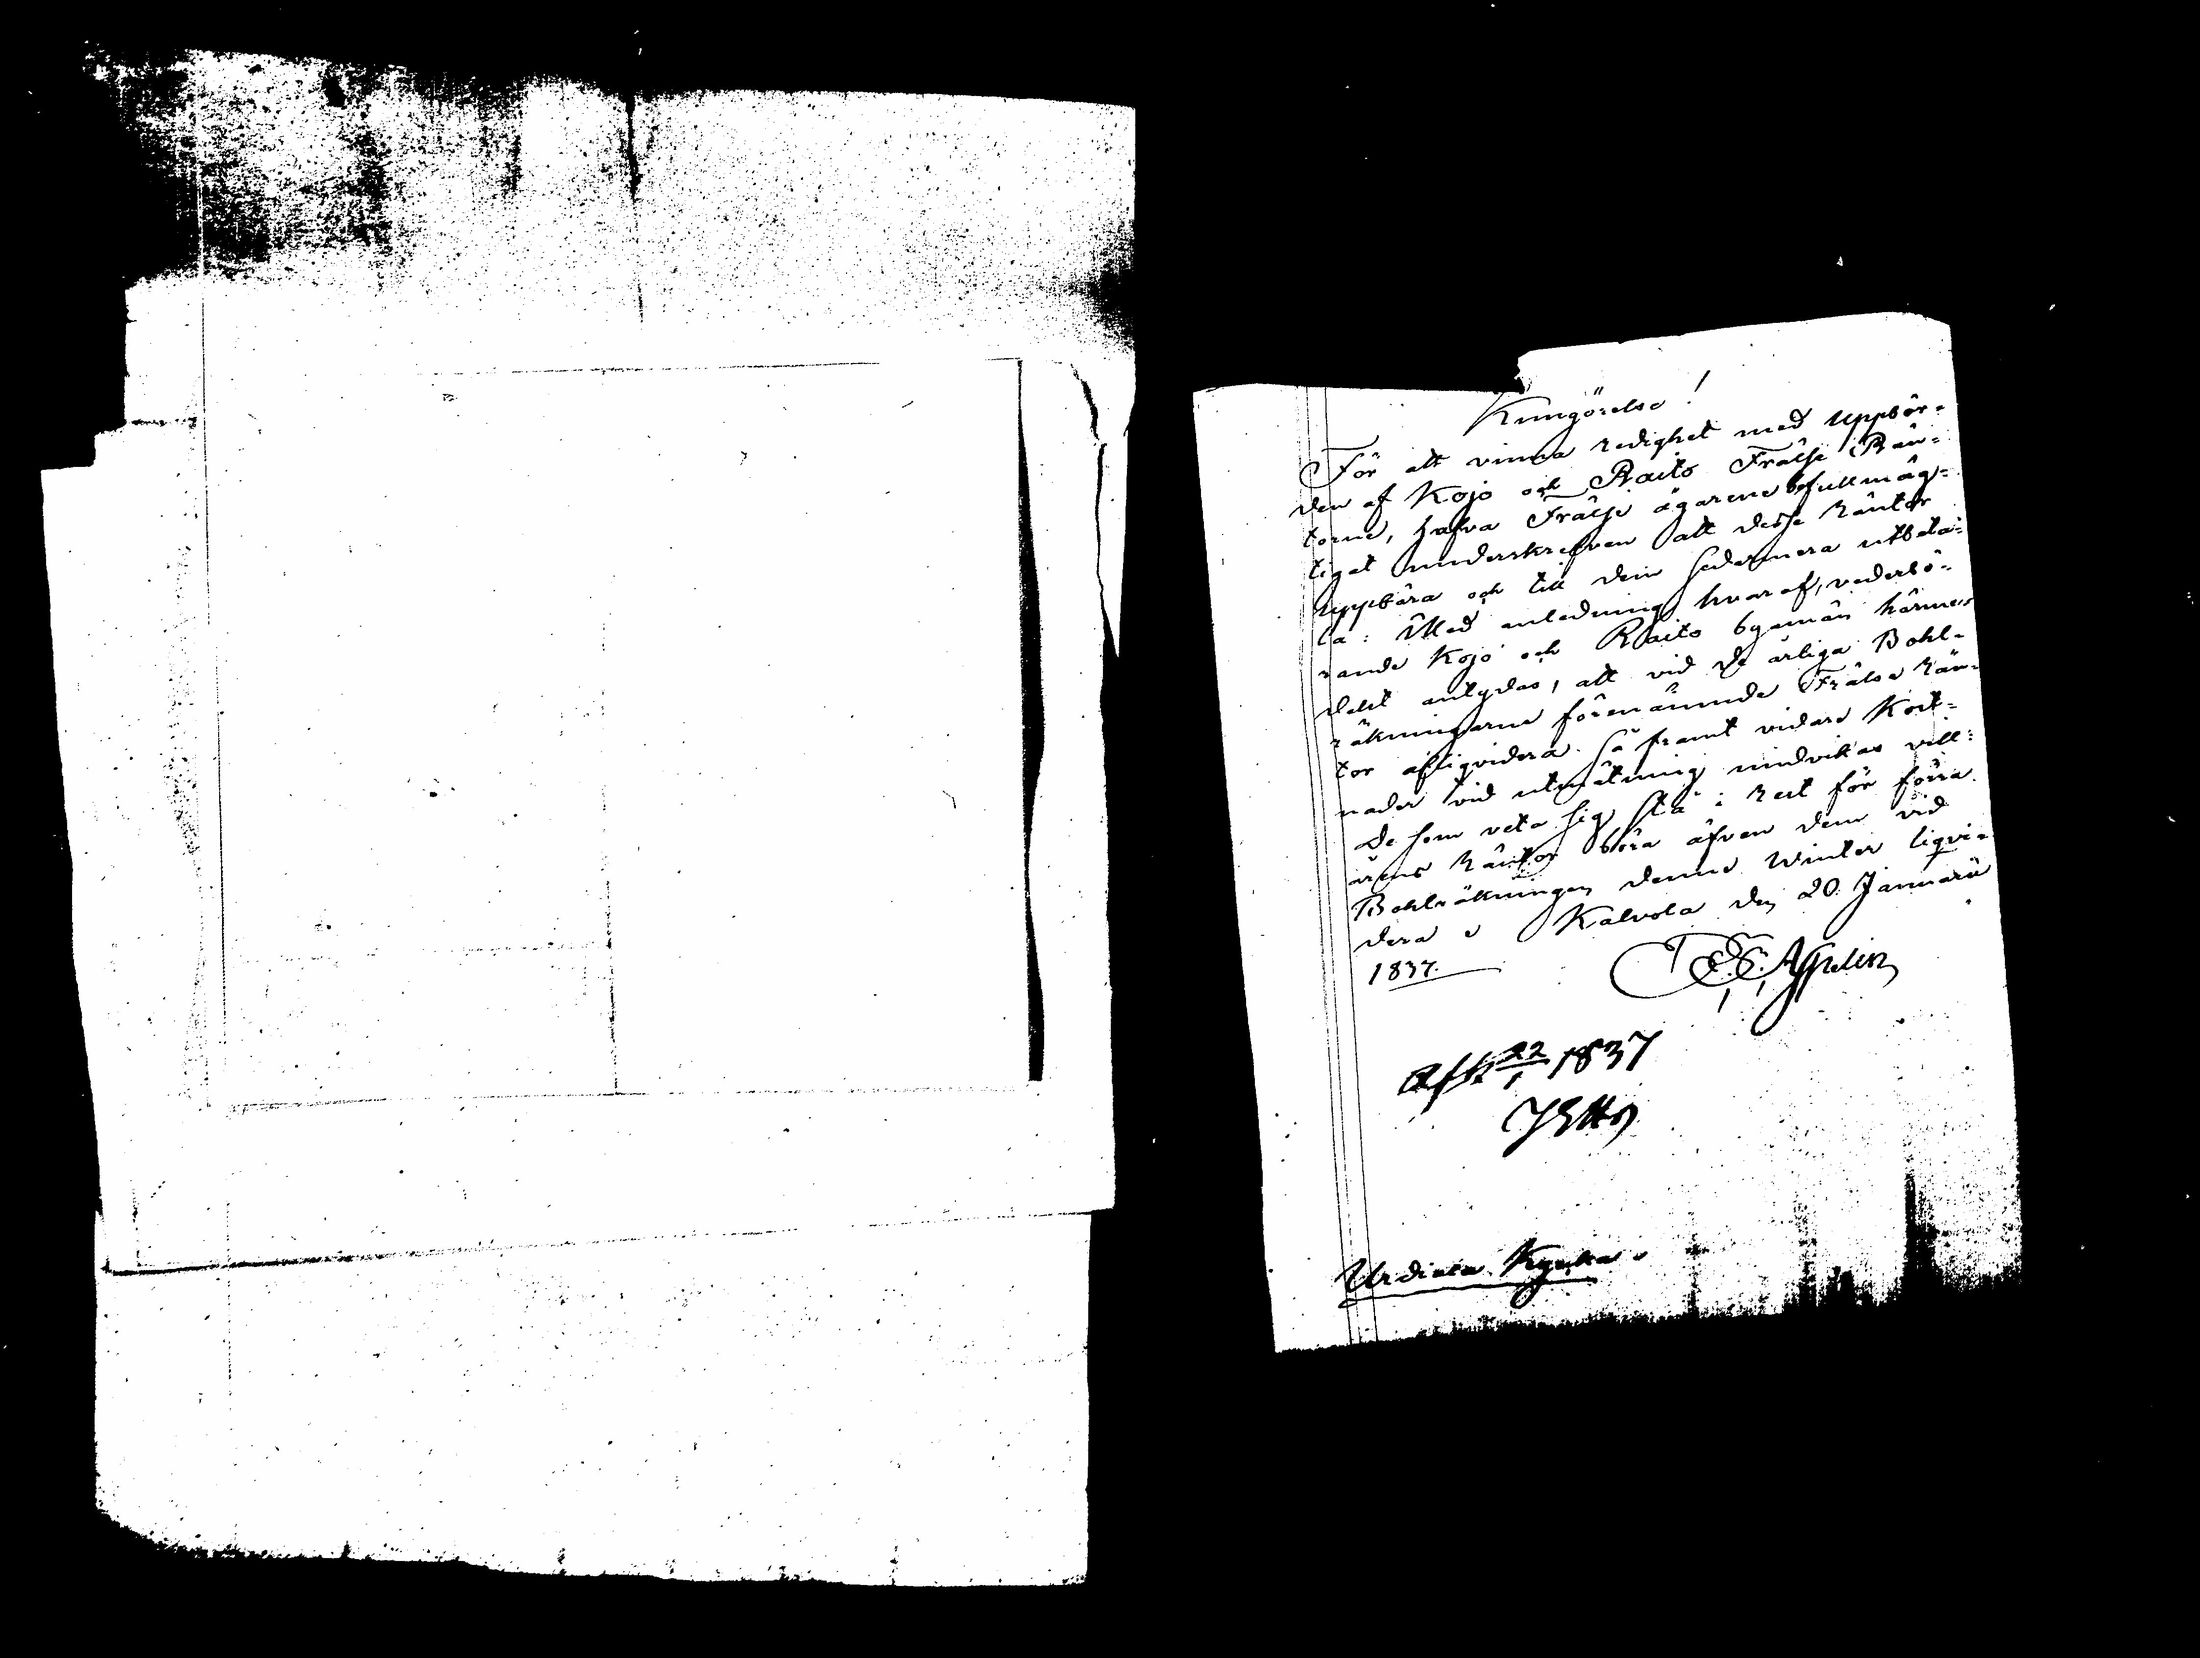 Kungörelse!
För att vinna redighet med uppbör-
den af Kojo och Raito Frälse Rän-
torne, hafva Frälse ägarene befullmäg-
tigat underskrefven att desse räntor
uppbära och till dem sedermera utbeta-
la: Med anledning hvaraf, vederbö-
rande Kojo och Raito byamän härme-
delst antydas, att vid de årliga Bohl-
räkningarne förenämnde Frälse rän-
tor afliqvidera så framt vidare Kost-
nader vid utmätning undvikas vill:
De som veta sig stå i rest för förra
årens räntor böra äfven dem vid
Bohlräkningen denne Winter liqvi-
dera Kalvola den 20 Januarii
1837.
Afk 22/1 1837
Urdiala Kyrka